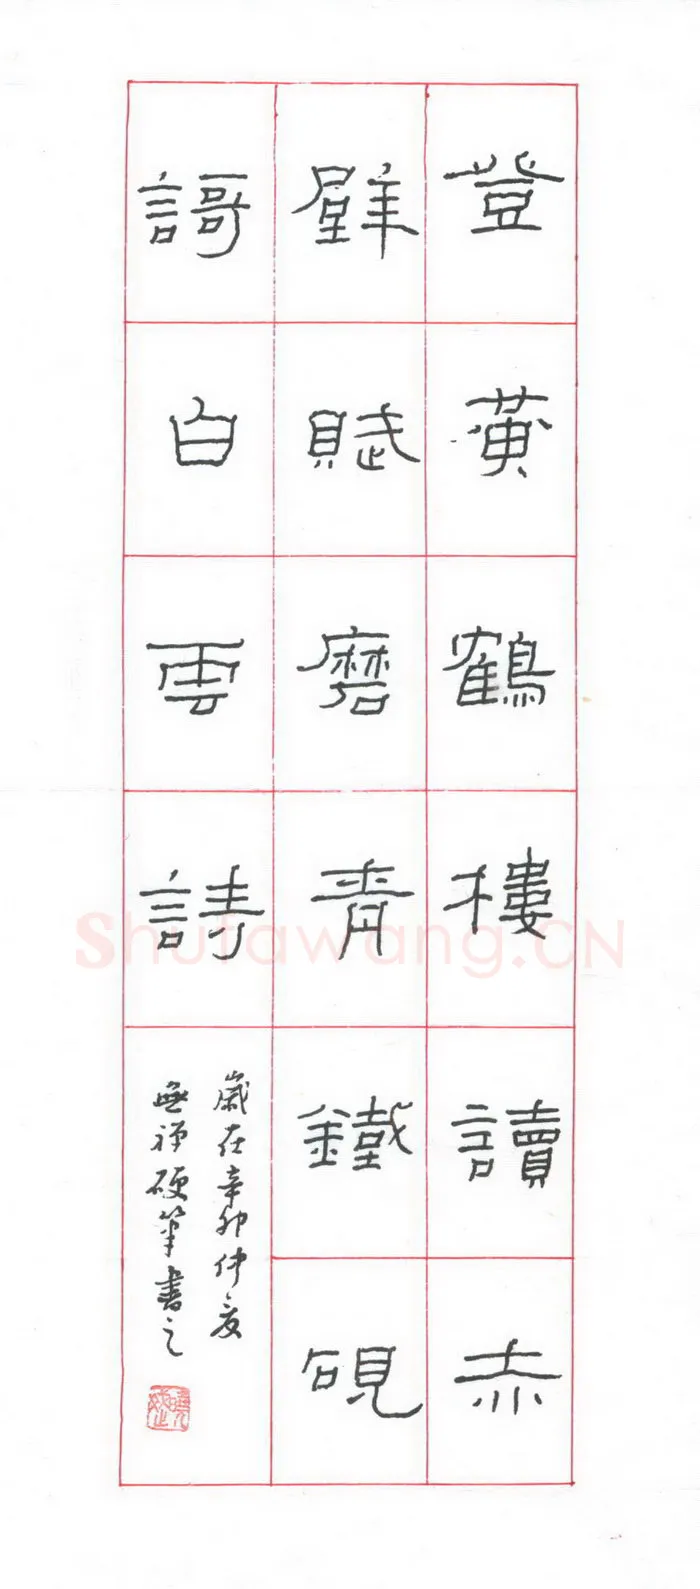 登黄鶴樓讀赤
壁賦磨青鐵硯
謌白雲詩
歲在辛卯仲夏
無禪硬筆書之
Shufawang.CN